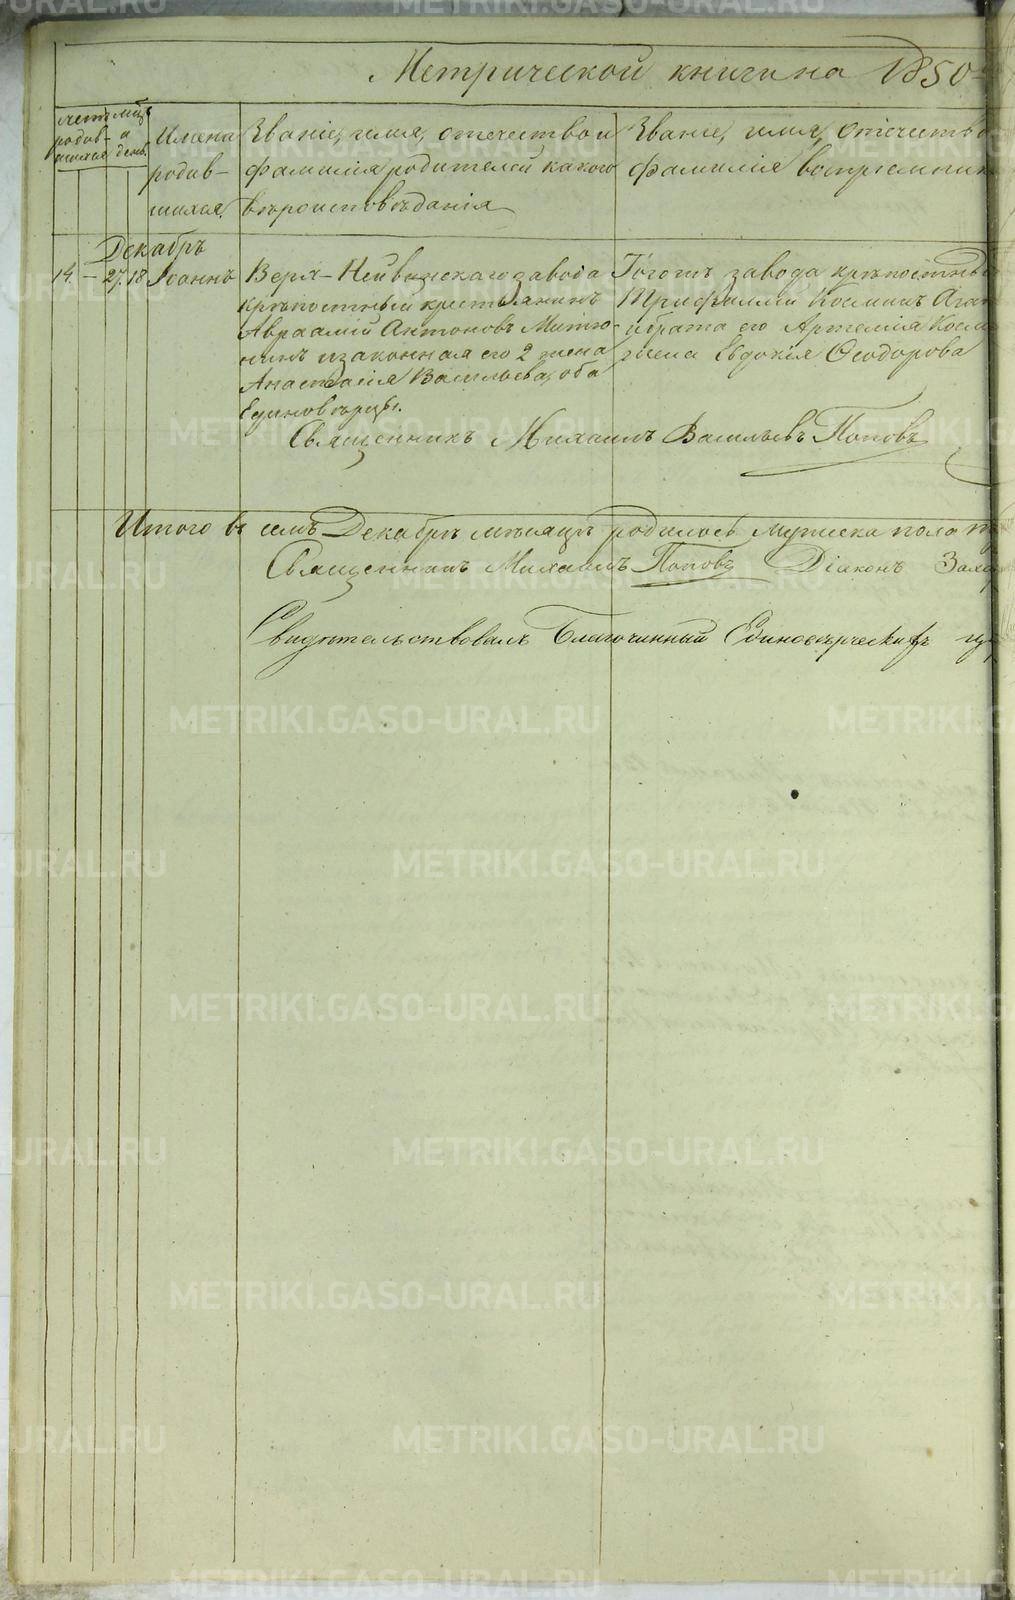 Метрической книги на 1850
счетъ родив-шихся
мцъ и день.
Имена родив-шихся.
Званіе, имя, отечество и
фамилія родителей какого
вѣроисповѣданія
Званіе, имя, отечество
фамилія воспріемник
Декабрь
14. — 27. 18 Іоаннъ
Верх-Нейвинскаго завода
крѣпостный крестьянинъ
Авраамій Антоновъ Митю-
нинъ и законная его 2 жена
Анастасія Васильева, оба
Единовѣрцы.
Тогожъ завода крѣпостны
Трифиллій Космин Ага
и брата его Артемія Косм
жена Евдокія Ѳеодорова
Священникъ Михаилъ Васильевъ Поповъ
Итого въ семъ Декабрѣ мѣсяцѣ родилось мужеска пола
Священникъ Михаилъ Поповъ Діаконъ
Свидѣтельствовалъ Благочинный Единовѣрческихъ
METRIKI.GASO-URAL.RU